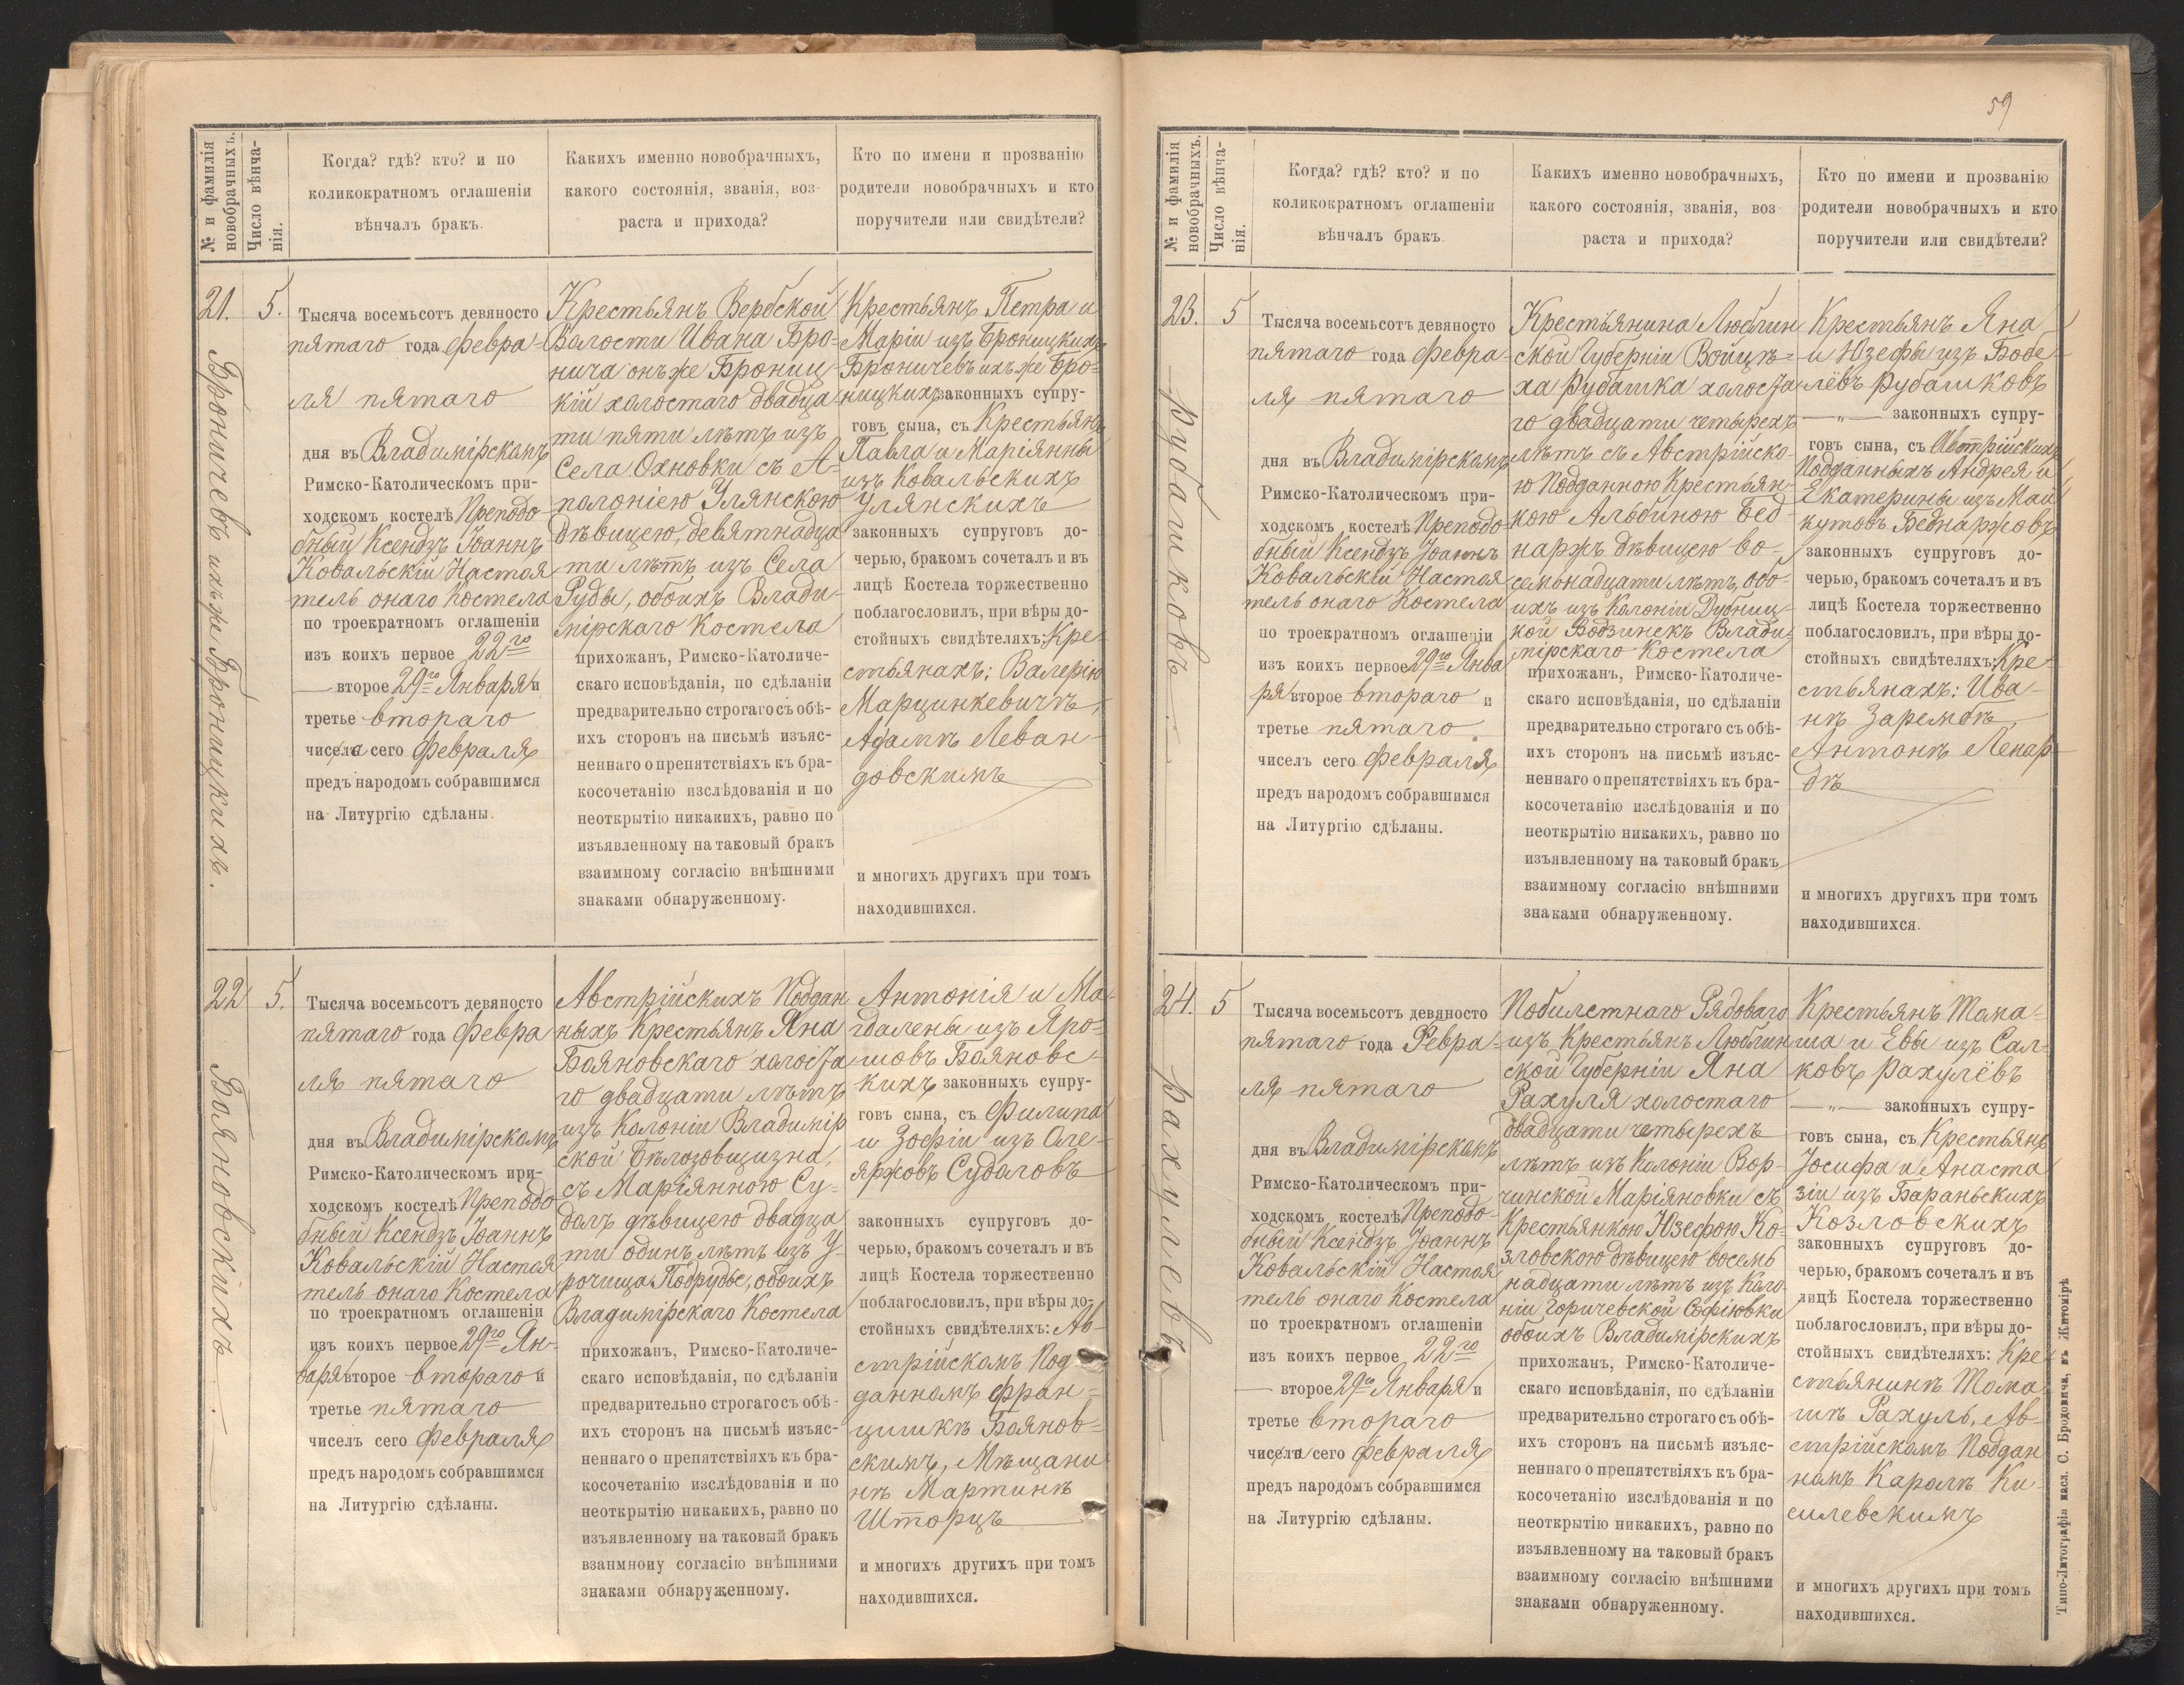 59
№ и фамилія
новобрачныхъ.
Число вѣнча-
нія.
Когда? гдѣ? кто? и по
коликократномъ оглашеніи
вѣнчалъ бракъ.
Какихъ именно новобрачныхъ,
какого состоянія, званія, воз
раста и прихода?
Кто по имени и прозванію
родители новобрачныхъ и кто
поручители или свидѣтели?
21.
Броничевъ ихъ же Броницкихъ.
5.
Тысяча восемьсотъ девяносто
пятаго года Февра-
ля пятаго
дня въ Владимірскомъ
Римско-Католическомъ при-
ходскомъ костелѣ Преподо
бный Ксендзъ Іоаннъ
Ковальскій Настоя
тель онаго Костела
по троекратномъ оглашеніи
изъ коихъ первое 22го
второе 29го Января и
третье втораго
числа сего Февраля
предъ народомъ собравшимся
на Литургію сдѣланы.
Крестьянъ Вербской
Волости Ивана Бро-
нича онъ же Брониц-
кій холостаго двадца
ти пяти лѣтъ изъ
Села Охновки съ А-
полоніею Улянскою
дѣвицею, девятнадца
ти лѣтъ изъ Села
Руды, обоихъ Влади-
мірскаго Костела
прихожанъ, Римско-Католиче-
скаго исповѣданія, по сдѣланіи
предварительно строгаго съ обѣ-
ихъ сторонъ на письмѣ изъяс-
неннаго о препятствіяхъ къ бра-
косочетанію изслѣдованія и по
неоткрытію никакихъ, равно по
изъявленному на таковый бракъ
взаимному согласію внѣшними
знаками обнаруженному.
Крестьянъ Петра и
Маріи изъ Броницкихъ
Броничевъ ихъ же Бро-
ницкихъ законныхъ супру-
говъ сына, съ Крестьянъ
Павла и Маріянны
изъ Ковальскихъ
Улянскихъ
законныхъ супруговъ до-
черью, бракомъ сочеталъ и въ
лицѣ Костела торжественно
поблагословилъ, при вѣры до-
стойныхъ свидѣтеляхъ: Кре-
стьянахъ: Валерію
Марцинкевичъ,
Адамѣ Леван-
довскимъ
и многихъ другихъ при томъ
находившихся.
22
Бояновскихъ
5.
Тысяча восемьсотъ девяносто
пятаго года Февра
ля пятаго
дня въ Владимірскомъ
Римско-Католическомъ при-
ходскомъ костелѣ Преподо
бный Ксендзъ Іоаннъ
Ковальскій Настоя
тель онаго Костела
по троекратномъ оглашеніи
изъ коихъ первое 29го Ян-
варя второе втораго и
третье пятаго
чиселъ сего Февраля
предъ народомъ собравшимся
на Литургію сдѣланы.
Австрійскихъ Поддан
ныхъ Крестьянъ Яна
Бояновскаго холоста
го двадцати лѣтъ
изъ Колоніи Владимір
ской Бѣлозовщизна,
съ Маріянною Су-
долъ дѣвицею двадца
ти одинъ лѣтъ изъ У-
рочища Подрудье, обоихъ
Владимірскаго Костела
прихожанъ, Римско-Католиче-
скаго исповѣданія, по сдѣланіи
предварительно строгаго съ обѣ-
ихъ сторонъ на письмѣ изъяс-
неннаго о препятствіяхъ къ бра-
косочетанію изслѣдованія и по
неоткрытію никакихъ, равно по
изъявленному на таковый бракъ
взаимному согласію внѣшними
знаками обнаруженному.
Антонія и Ма-
гдалены изъ Яро-
шовъ Бояновс-
кихъ законныхъ супру-
говъ сына, съ Филипа
и Зофіи изъ Оле-
яржовъ Судоловъ
законныхъ супруговъ до-
черью, бракомъ сочеталъ и въ
лицѣ Костела торжественно
поблагословилъ, при вѣры до-
стойныхъ свидѣтеляхъ: Ав-
стрійскомъ Под-
данномъ Фран-
цишкѣ Боянов-
скимъ, Мѣщани
нѣ Мартинѣ
Шторцъ
и многихъ другихъ при томъ
находившихся.
№ и фамилія
новобрачныхъ.
Число вѣнча-
нія.
Когда? гдѣ? кто? и по
коликократномъ оглашеніи
вѣнчалъ бракъ.
Какихъ именно новобрачныхъ,
какого состоянія, званія, воз
раста и прихода?
Кто по имени и прозванію
родители новобрачныхъ и кто
поручители или свидѣтели?
23.
Рубашковъ
5
Тысяча восемьсотъ девяносто
пятаго года Февра-
ля пятаго
дня въ Владимірскомъ
Римско-Католическомъ при-
ходскомъ костелѣ Преподо-
бный Ксендзъ Іоаннъ
Ковальскій Настоя
тель онаго Костела
по троекратномъ оглашеніи
изъ коихъ первое 29го Янва
ря второе втораго и
третье пятаго
чиселъ сего Февраля
предъ народомъ собравшимся
на Литургію сдѣланы.
Крестьянина Люблин
ской Губерніи Войцѣ-
ха Рубашка холоста
го двадцати четырехъ
лѣтъ съ Австрійско-
ю Подданною Крестьян-
кою Альбиною Бед-
наржъ дѣвицею во-
семнадцати лѣтъ, обо-
ихъ изъ Колоніи Дубниц-
кой Водзинекъ Влади
мірскаго Костела
прихожанъ, Римско-Католиче-
скаго исповѣданія, по сдѣланіи
предварительно строгаго съ обѣ-
ихъ сторонъ на письмѣ изъяс-
неннаго о препятствіяхъ къ бра-
косочетанію изслѣдованія и по
неоткрытію никакихъ, равно по
изъявленному на таковый бракъ
взаимному согласію внѣшними
знаками обнаруженному.
Крестьянъ Яна
и Юзефы изъ Бобе-
лёвъ Рубашковъ
— „ — законныхъ супру-
говъ сына, съ Австрійскихъ
Подданныхъ Андрея и
Екатерины изъ Мац
кутовъ Беднаржовъ
законныхъ супруговъ до-
черью, бракомъ сочеталъ и въ
лицѣ Костела торжественно
поблагословилъ, при вѣры до-
стойныхъ свидѣтеляхъ: Кре-
стьянахъ: Ива-
нѣ Зарембѣ,
Антонѣ Ленар-
дѣ
и многихъ другихъ при томъ
находившихся.
24.
Рахулевъ
5
Тысяча восемьсотъ девяносто
пятаго года Февра-
ля пятаго
дня въ Владимірскомъ
Римско-Католическомъ при-
ходскомъ костелѣ Преподо-
бный Ксендзъ Іоаннъ
Ковальскій Настоя
тель онаго Костела
по троекратномъ оглашеніи
изъ коихъ первое 22го
второе 29го Января и
третье втораго
числа сего Февраля
предъ народомъ собравшимся
на Литургію сдѣланы.
Побилетнаго Рядоваго
изъ Крестьянъ Люблин
ской Губерніи Яна
Рахуля холостаго
двадцати четырехъ
лѣтъ изъ Колоніи Вор-
чинской Маріяновки съ
Крестьянкою Юзефою Ко-
зловскою дѣвицею восемь
надцати лѣтъ изъ Коло-
ніи Горичевской Софіювки
обоихъ Владимірскихъ
прихожанъ, Римско-Католиче-
скаго исповѣданія, по сдѣланіи
предварительно строгаго съ обѣ-
ихъ сторонъ на письмѣ изъяс-
неннаго о препятствіяхъ къ бра-
косочетанію изслѣдованія и по
неоткрытію никакихъ, равно по
изъявленному на таковый бракъ
взаимному согласію внѣшними
знаками обнаруженному.
Крестьянъ Тома-
ша и Евы изъ Сал-
ковъ Рахулёвъ
— „ — законныхъ супру-
говъ сына, съ Крестьянъ
Іосифа и Анаста
зіи изъ Бараньскихъ
Козловскихъ
законныхъ супруговъ до-
черью, бракомъ сочеталъ и въ
лицѣ Костела торжественно
поблагословилъ, при вѣры до-
стойныхъ свидѣтеляхъ: Кре
стьянинѣ Тома
шѣ Рахуль, Ав-
стрійскомъ Поддан
номъ Каролѣ Ки-
силевскимъ
и многихъ другихъ при томъ
находившихся.
Типо-Литографія насл. С. Бродовича, въ Житомірѣ